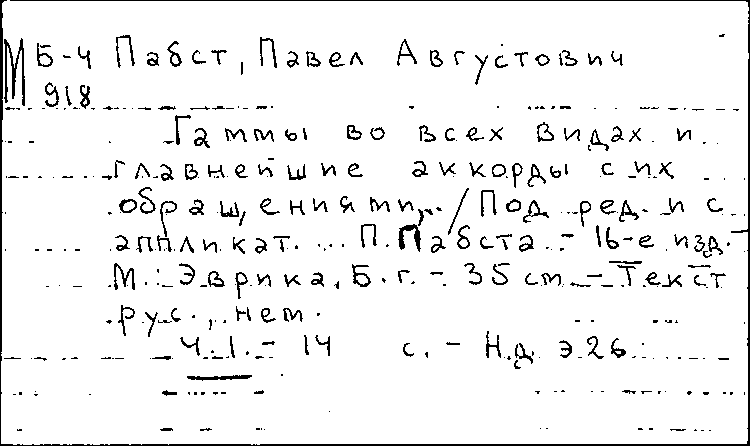 М Б-4 Пабст, Павел Августович
918
Гаммы во всех видах и
главнейшие аккорды с их
обращениями... / Под ред. и с
аппликат. ... П. Пабста. - 16-е изд. -
М.: Эврика, Б. г. - 35 см. - Текст
рус., нем.
Ч. 1. - 14 с. - Н.д. Э26